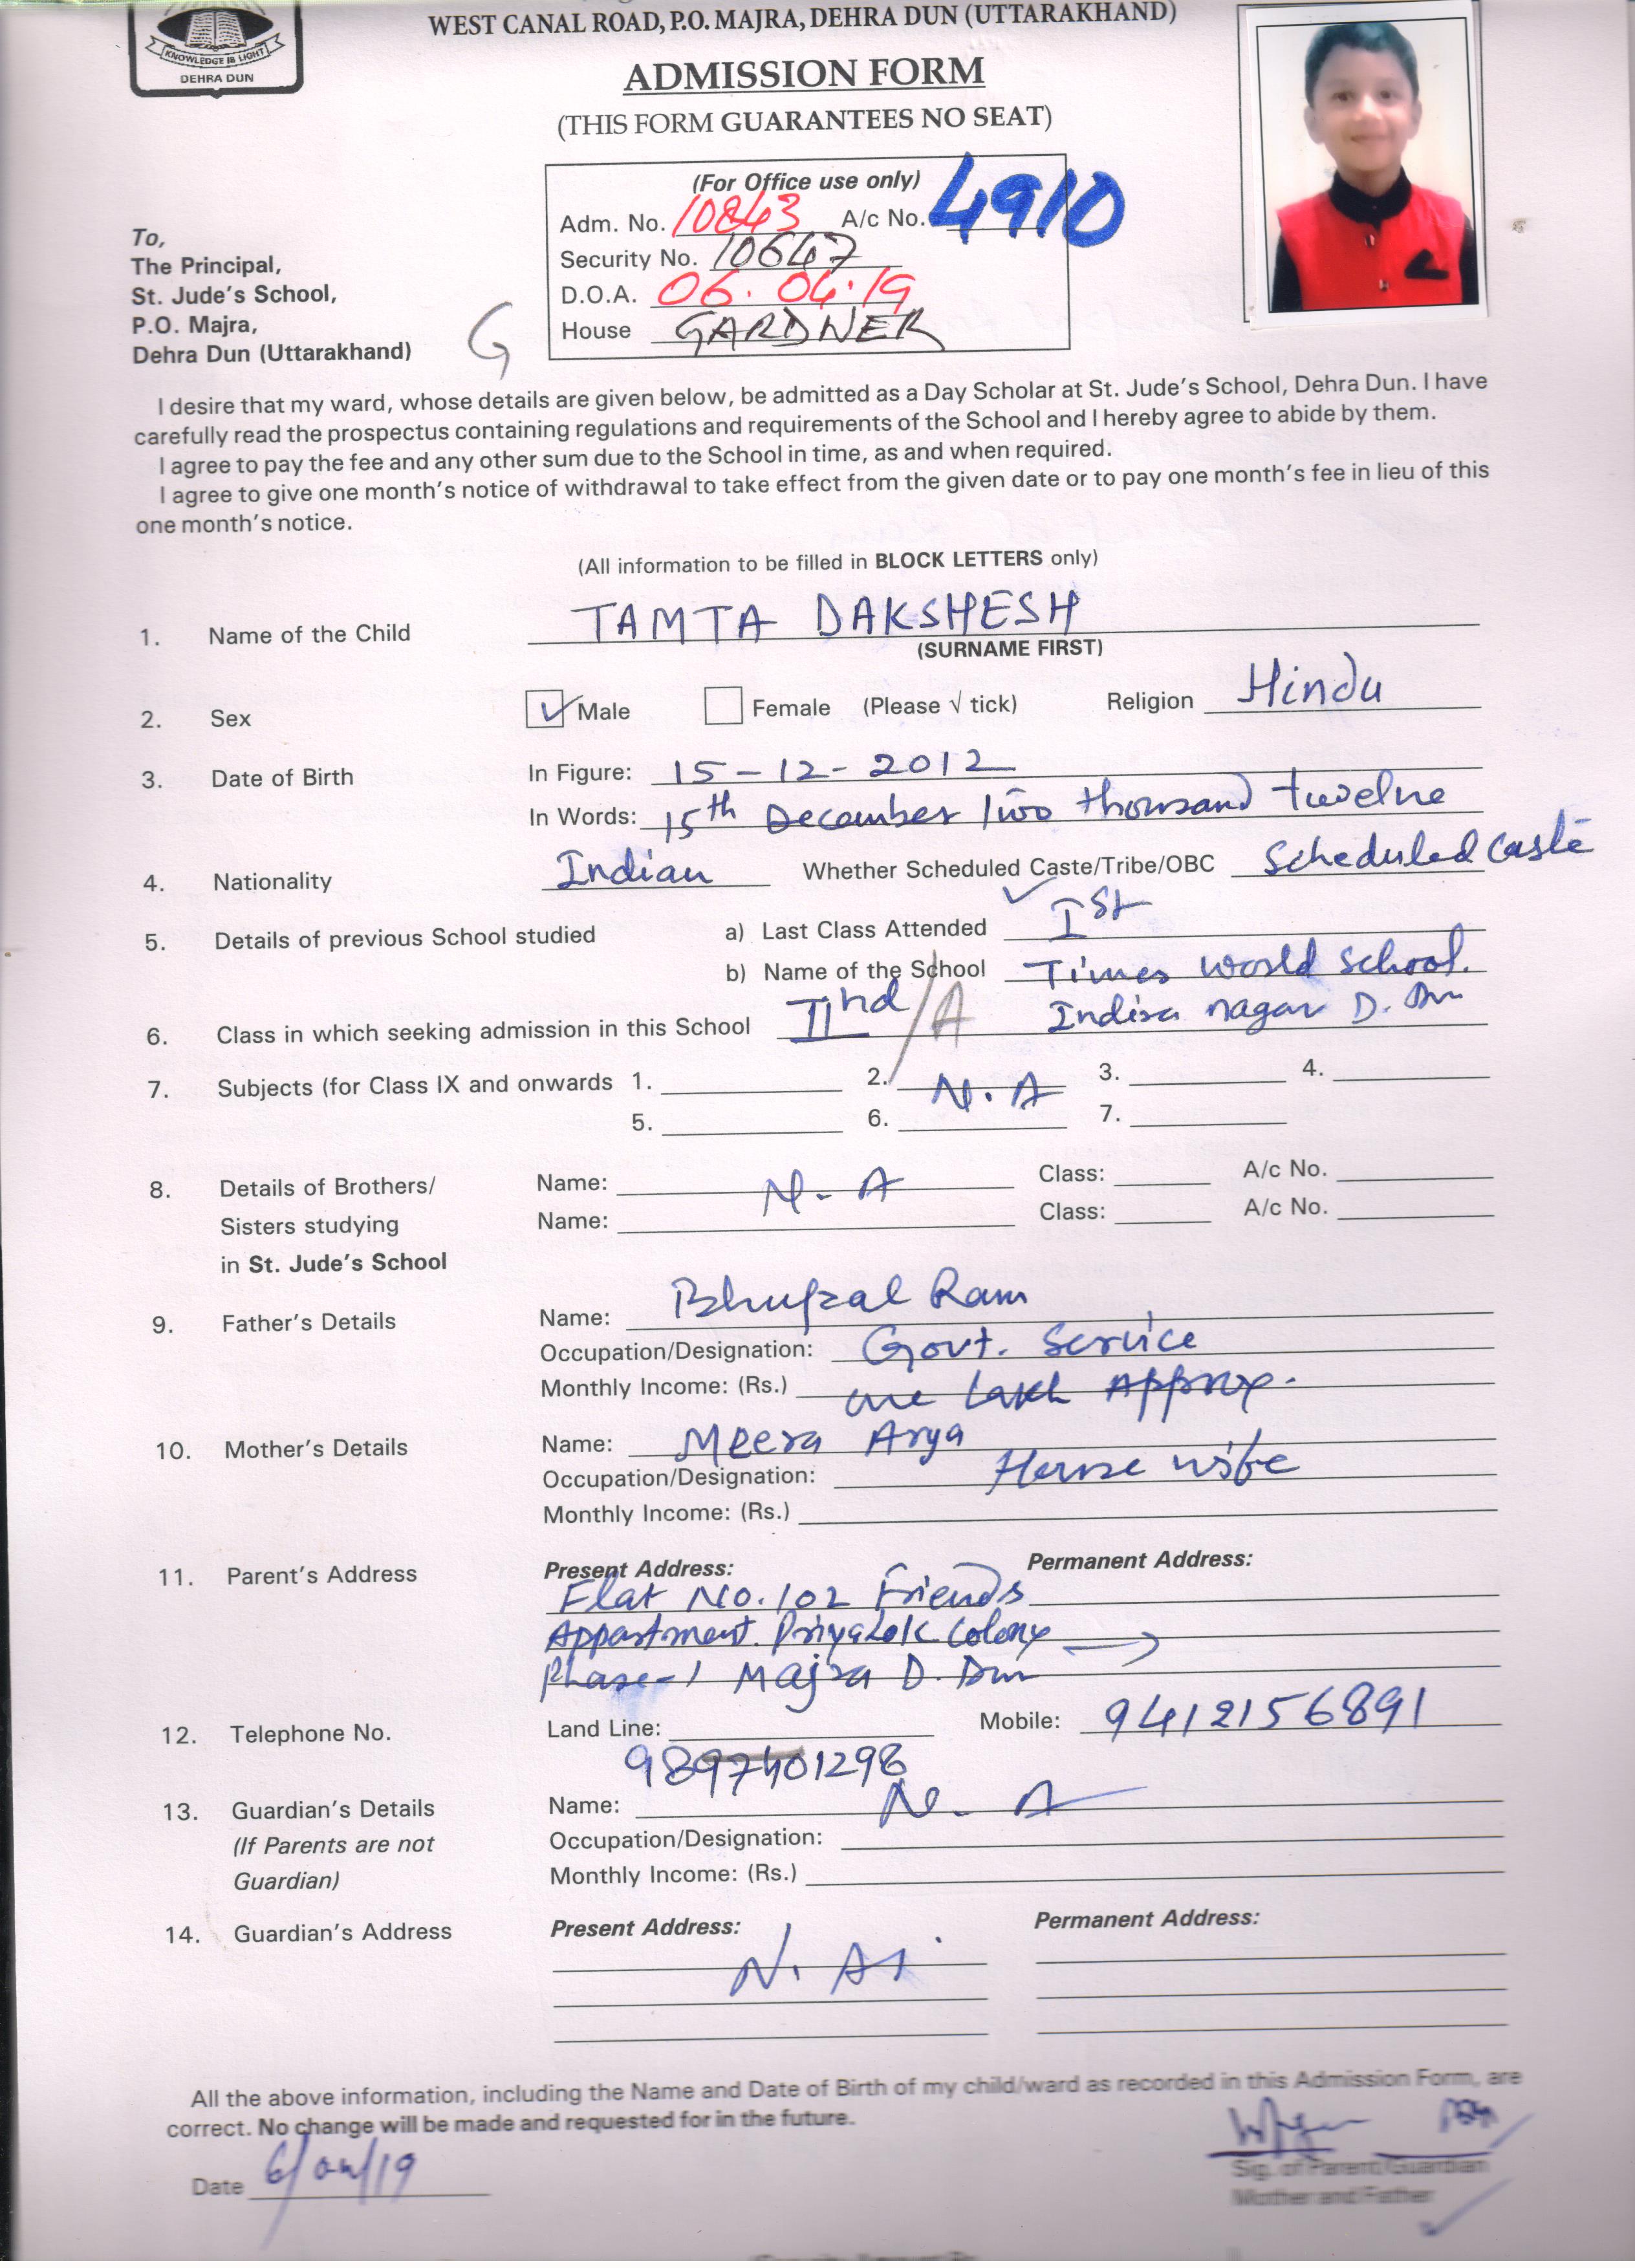 KNOWLEDGE IS LIGHT
DEHRA DUN
WEST CANAL ROAD, P.O. MAJRA, DEHRA DUN (UTTARAKHAND)
ADMISSION FORM
(THIS FORM GUARANTEES NO SEAT)
(For Office use only)
Adm. No. 10843 A/c No. 4910
Security No. 10647
D.O.A. 06.04.19
House GARDNER
To,
The Principal,
St. Jude's School,
P.O. Majra,
Dehra Dun (Uttarakhand)
G
I desire that my ward, whose details are given below, be admitted as a Day Scholar at St. Jude's School, Dehra Dun. I have
carefully read the prospectus containing regulations and requirements of the School and I hereby agree to abide by them.
I agree to pay the fee and any other sum due to the School in time, as and when required.
I agree to give one month's notice of withdrawal to take effect from the given date or to pay one month's fee in lieu of this
one month's notice.
(All information to be filled in BLOCK LETTERS only)
1. Name of the Child TAMTA DAKSHESH
(SURNAME FIRST)
2. Sex Male Female (Please √ tick) Religion Hindu
3. Date of Birth In Figure: 15-12-2012
In Words: 15th December Two thousand twelve
4. Nationality Indian Whether Scheduled Caste/Tribe/OBC Scheduled Caste
5. Details of previous School studied a) Last Class Attended Ist
b) Name of the School Times World School.
Indira nagar D. Dun
6. Class in which seeking admission in this School IInd /A
7. Subjects (for Class IX and onwards 1. 2. N.A 3. 4.
5. 6. 7.
8. Details of Brothers/ Name: N.A Class: A/c No.
Sisters studying Name: Class: A/c No.
in St. Jude's School
9. Father's Details Name: Bhupal Ram
Occupation/Designation: Govt. Service
Monthly Income: (Rs.) one Lakh Approx.
10. Mother's Details Name: Meera Arya
Occupation/Designation: House wife
Monthly Income: (Rs.)
11. Parent's Address Present Address: Permanent Address:
Flat No. 102 Friends
Appartment. Priyalok Colony
Phase-1 Majra D. Dun
12. Telephone No. Land Line: Mobile: 9412156891
9897401298
13. Guardian's Details Name: N. A
(If Parents are not Occupation/Designation:
Guardian) Monthly Income: (Rs.)
14. Guardian's Address Present Address: Permanent Address:
N. A.
All the above information, including the Name and Date of Birth of my child/ward as recorded in this Admission Form, are
correct. No change will be made and requested for in the future.
Date 6/04/19
Sig. of Parent/Guardian
Mother and Father